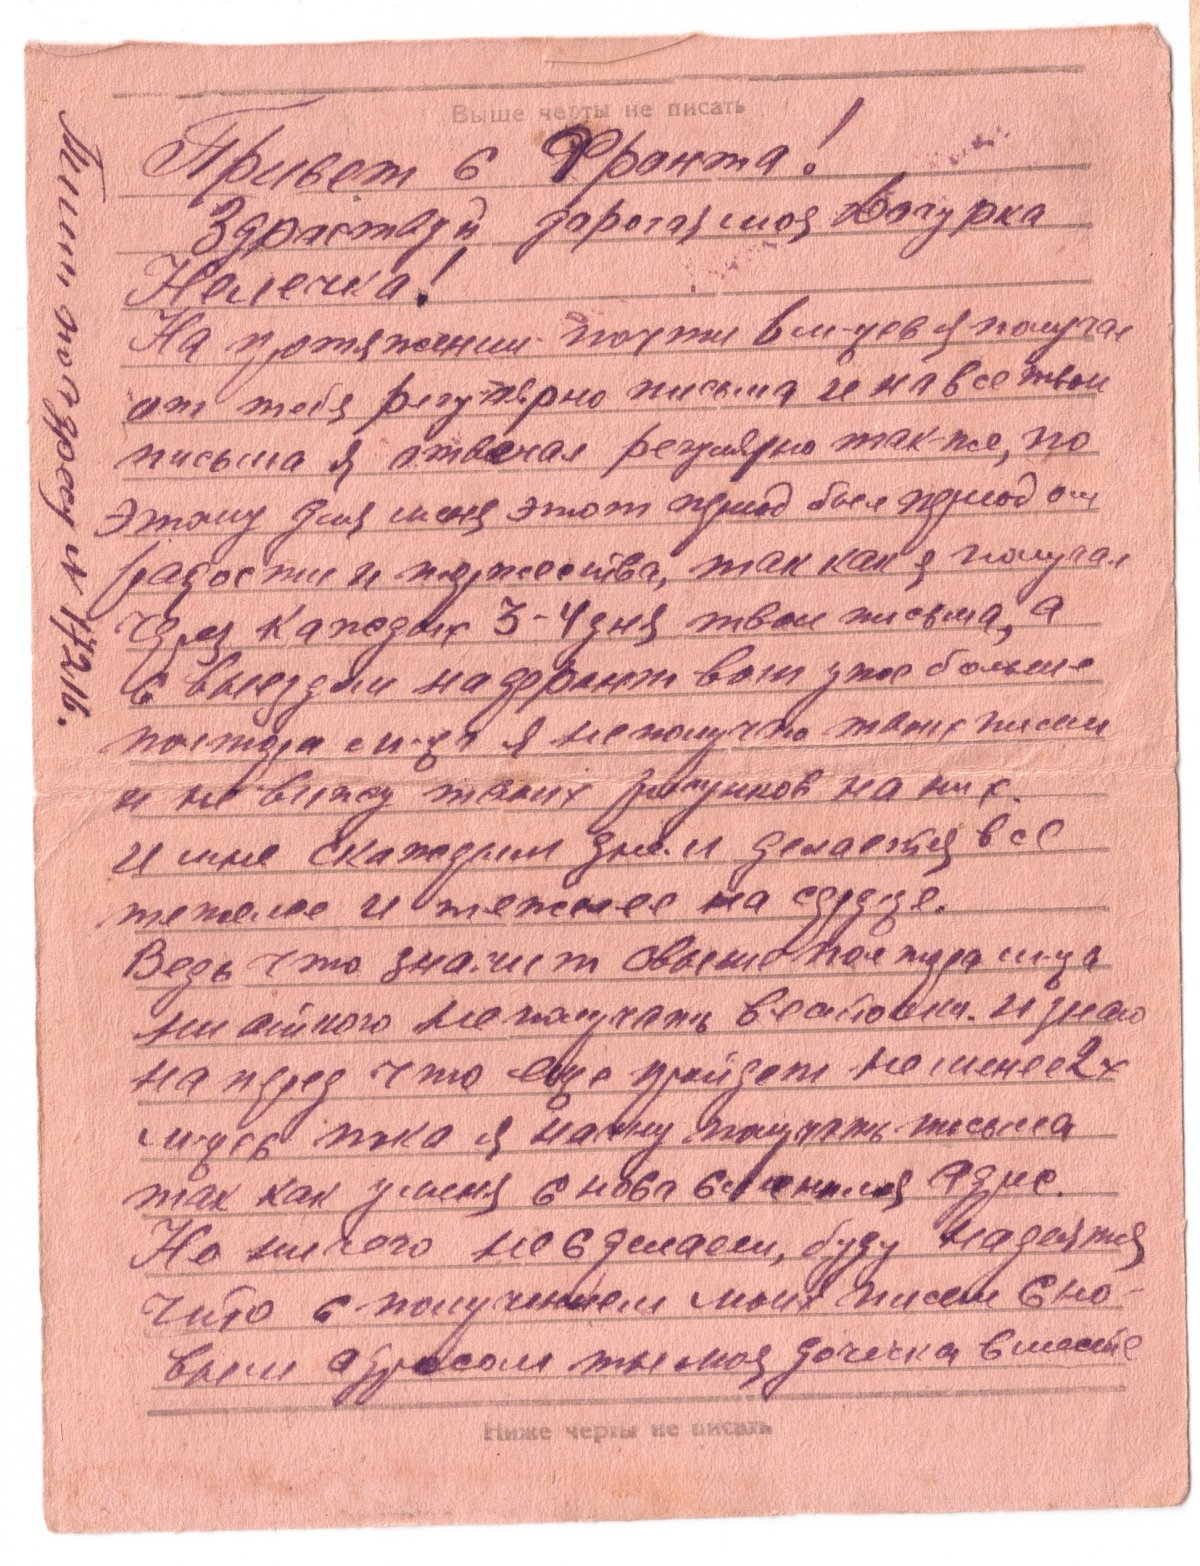 Выше черты не писать
Привет с Фронта!
Здраствуй дорогая моя
Нелечка!
На протяжении почти 6 м-цев я получал
от тебя регулярно письма и на все твои
письма я отвечал регулярно так-же, по
этому для меня этот период был период ом
радости и торжества, так как я получал
через каждых 3-4 дня твои письма, а
с выездом на фронт вот уже больше
полтора м-ца я не получаю твоих писем
и не вижу твоих рисунков на них.
И мне с каждым днем делается всё
тяжелее и тяжелее на сердце.
Ведь что значит свыше полтора м-ца
ни одного не получать весточки. И знаю
на перед что еще пройдет не менее 2х
м-цев пока я начну получать письма
так как у меня с нова сменился адрес.
Но ничего не сделаеш, буду надеятся
что с получением моих писем с но-
вым адресом ты моя дочечка вместе
Ниже черты не писать
Пиши по адресу N 14216.